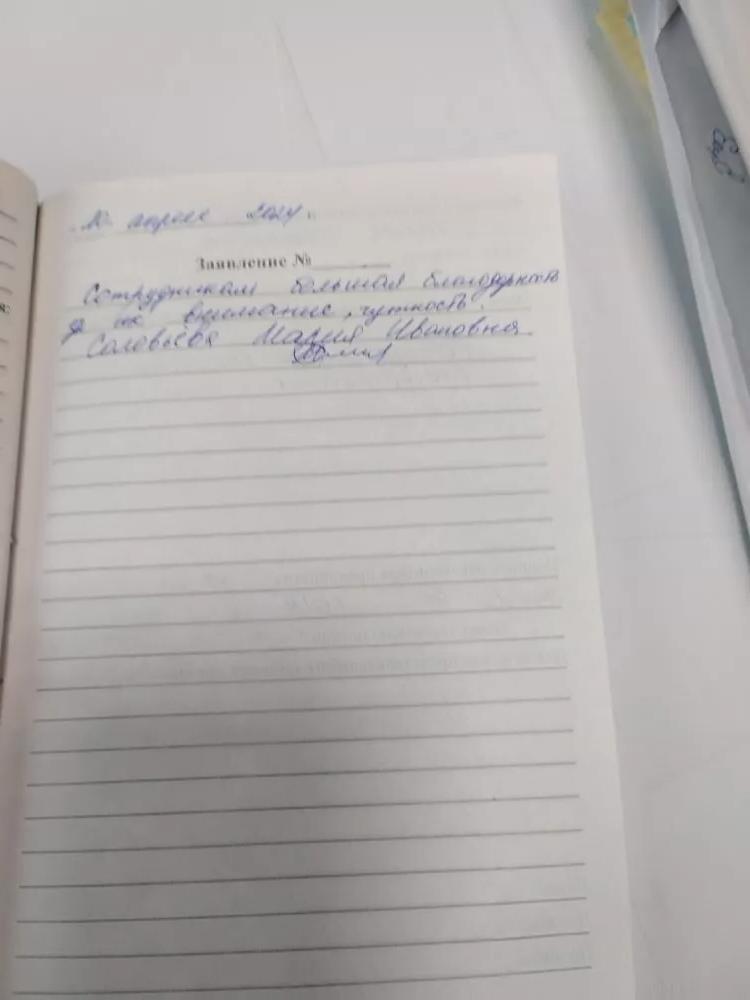 10 апреля 2024 г.
Заявление №
Сотрудникам большая благодарность
за их внимание, чуткость.
Соловьёва Мария Ивановна